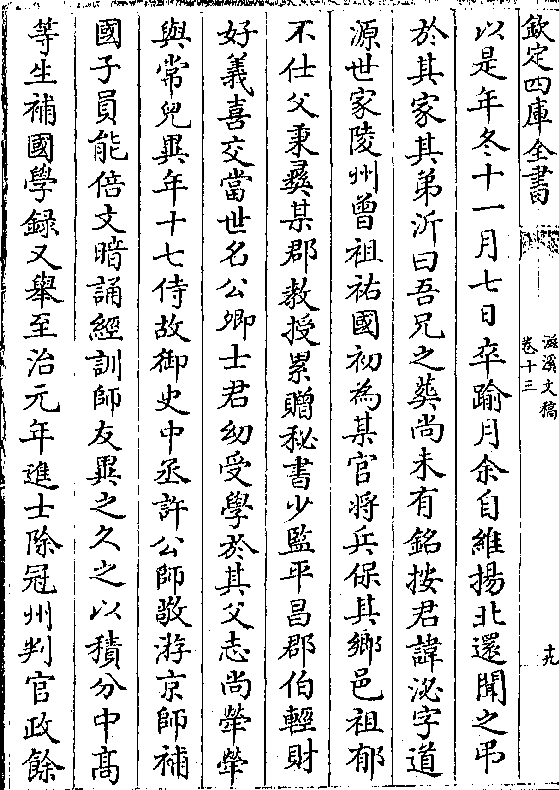 欽定四庫全書
滋溪文稿
卷十三
十九
以是年冬十一月七日卒踰月余自維揚北還聞之弔
於其家其弟沂曰吾兄之葬尚未有銘按君諱泌字道
源世家陵州曾祖祐國初為某官將兵保其鄉邑祖郁
不仕父秉彞某郡教授累贈秘書少監平昌郡伯輕財
好義喜交當世名公卿士君幼受學於其父志尚犖犖
與常兒異年十七侍故御史中丞許公師敬游京師補
國子員能倍文暗誦經訓師友異之久之以積分中高
等生補國學録又舉至治元年進士除冠州判官政餘